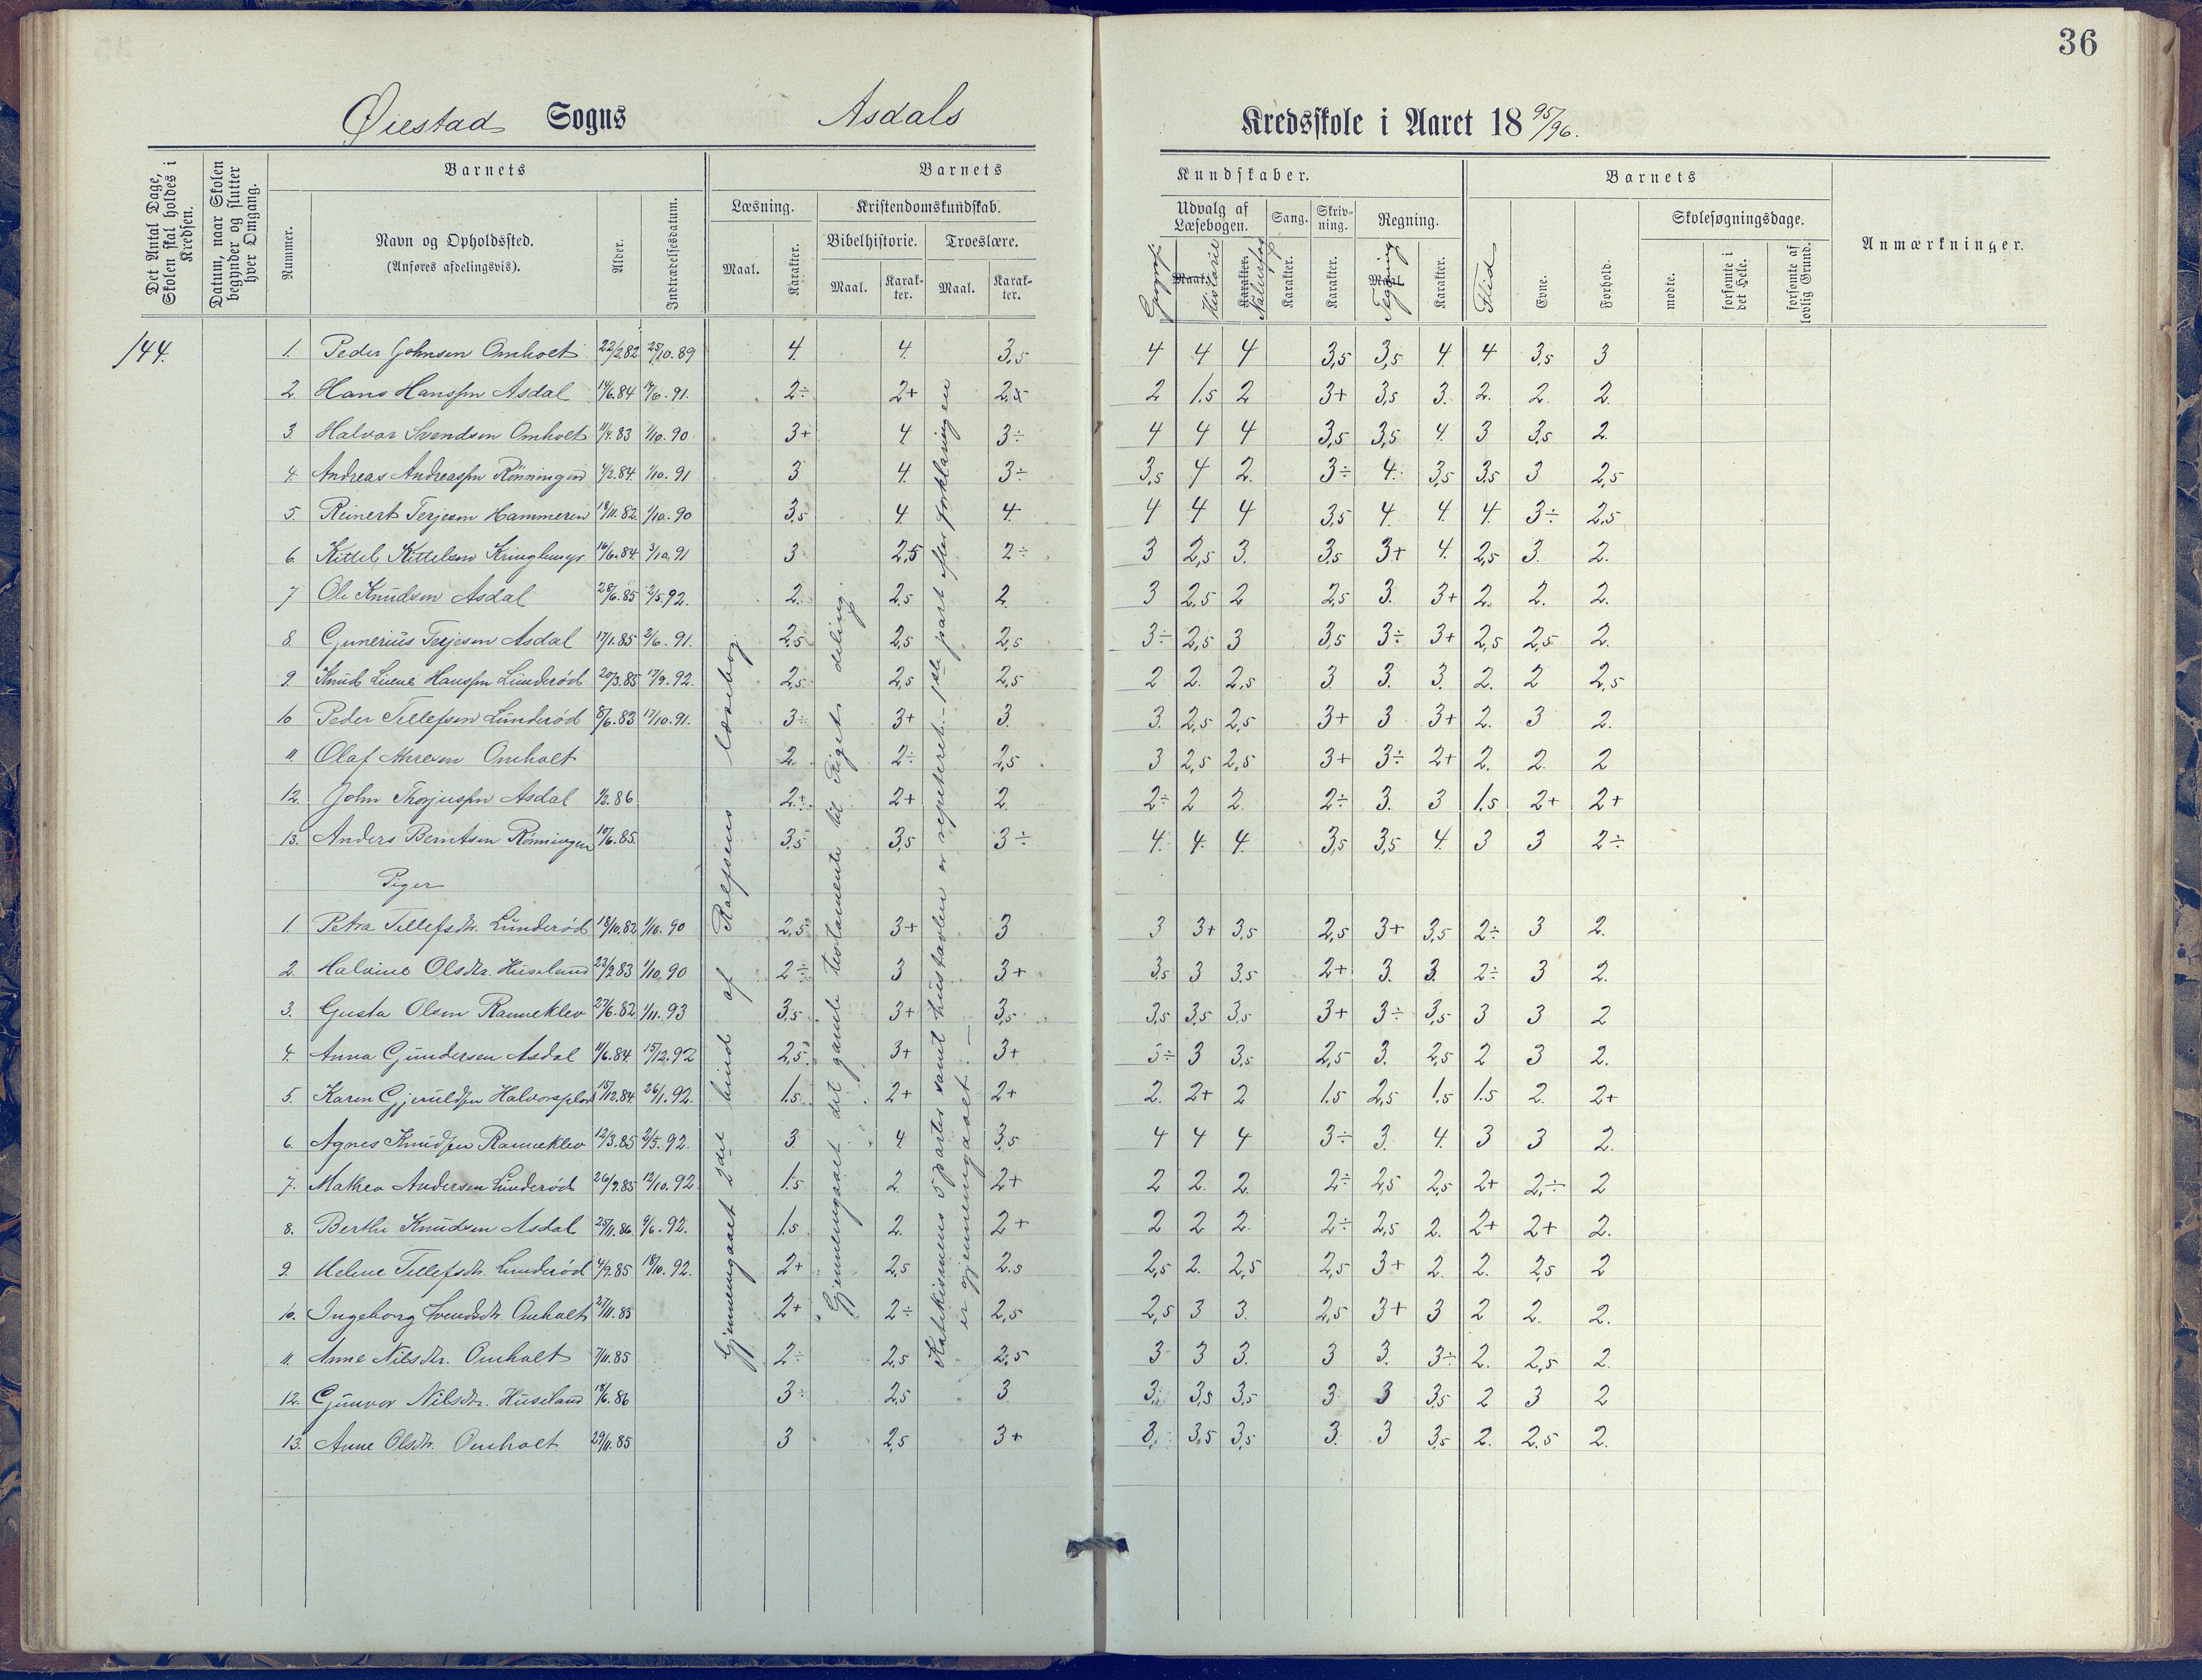 36
Øiestad Sogns Asdals Kredsskole i Aaret 18 95/96.
Det Antal Dage, Skolen skal holdes i Kredsen.
Datum, naar Skolen begynder og slutter hver Omgang.
Barnets
Nummer.
Navn og Opholdssted. (Anføres afdelingsvis).
Alder.
Indtrædelsesdatum.
Barnets Kundskaber.
Læsning.
Maal.
Karakter.
Kristendomskundskab.
Bibelhistorie.
Maal.
Karakter.
Troeslære.
Maal.
Karakter.
Udvalg af Læsebogen.
Geografi
Maal. Historie
Karakter. Naturfag
Sang.
Karakter.
Skrivning.
Karakter.
Regning.
Maal. Tegning
Karakter.
Barnets
Flid
Evne.
Forhold.
Skolesøgningsdage.
mødte.
forsømte i det Hele.
forsømte af lovlig Grund.
Anmærkninger.
144.
1. Peder Johnsen Omholt 22/2.82 25/10.89 4. 4. 3,5 4 4 4 3,5 3,5 4. 4 3,5 3
2. Hans Hanssen Asdal 14/6.84 14/6.91. 2÷ 2+ 2,5 2 1.5 2 3+ 3,5 3. 2. 2. 2.
3. Halvor Svendsen Omholt 11/4.83 1/10.90 3+ 4 3÷ 4 4 4 3,5 3,5 4. 3 3,5 2.
4. Andreas Andreassen Rönningen 4/2.84. 1/10.91 3 4. 3÷ 3,5 4 2. 3÷ 4. 3,5 3,5 3 2,5
5. Reinert Terjesen Hammeren 18/11.82. 1/10.90 3,5 4. 4. 4 4 4 3,5 4. 4. 4. 3÷ 2,5
6. Kittel Kittelsen Kringlemyr 16/6.84. 3/10.91 3 2,5 2÷ 3 2,5 3. 3,5 3+ 4. 2,5 3. 2.
7 Ole Knudsen Asdal 28/6.85 2/5.92. 2. 2,5 2. 3 2,5 2 2,5 3. 3+ 2. 2. 2.
8. Gunerius Terjesen Asdal 17/1.85 2/6.91. 2,5 2,5 2,5 3÷ 2,5 3 3,5 3÷ 3+ 2,5 2,5 2.
9. Knud Hanssen Lunderöd 20/3.85 17/9.92. 2,5. 2,5 2,5 2 2. 2,5 3. 3. 3. 2. 2 2,5
10 Peder Tellefsen Lunderöd 8/6.83 17/10.91. 3÷ 3+ 3. 3. 2,5 2,5 3+ 3 3+ 2. 3 2.
11. Olaf Omholt 2. 2÷ 2,5 3 2,5 2,5 3+ 3÷ 2+ 2. 2. 2
12. John Thorjussen Asdal 1/2.86 2÷ 2+ 2. 2÷ 2 2. 2÷ 3. 3 1.5 2+ 2+
13. Anders Berntsen Rönningen 10/6.85. 3,5 3,5 3÷ 4. 4. 4. 3,5 3,5 4. 3 3 2÷
Piger
1. Petra Tellefsdtr. Lunderöd 18/10.82 1/10.90 2,5 3+ 3 3 3+ 3,5 2,5 3+ 3,5 2÷ 3 2.
2. Halvine Olsdtr. Huseland 23/9.83 1/10.90 2÷ 3 3+ 3,5 3 3,5 2+ 3. 3. 2÷ 3 2.
3. Gusta Olsen Ranneklev 27/6.82 1/11.93 3,5 3+ 3,5 3,5 3,5 3,5 3+ 3÷ 3,5 3 3 2
4. Anna Gundersen Asdal 11/6.84 15/12.92 2,5 3+ 3+ 3÷ 3 3,5 2,5 3. 2,5 2 3 2.
5. Karen Gjeruldsen 15/12.84. 26/1.92. 1.5 2+ 2+ 2. 2+ 2 1.5 2,5 1.5 1.5 2. 2+
6. Agnes Knudsen Ranneklev 12/3.85 2/5.92. 3 4 3,5 4 4 4 3÷ 3. 4. 3 3 2.
7. Mathea Andersen Lunderöd 26/9.85 12/10.92. 1.5 2. 2+ 2 2. 2. 2÷ 2,5 2,5 2+ 2÷ 2
8. Berthe Knudsen Asdal 25/11.86 9/6.92. 1.5 2. 2+ 2 2 2. 2÷ 2,5 2. 2+ 2+ 2.
9. Helene Tellefsdtr. Lunderöd 4/9.85 18/10.92. 2+ 2,5 2.5 2,5 2. 2,5 2,5 3+ 2. 2. 2,5 2
10. Ingeborg Svendsdtr. Omholt 27/11.85 2+ 2÷ 2,5 2,5 3 3. 2,5 3+ 3 2 2. 2.
11. Anne Nilsdtr. Omholt 7/11.85 2÷ 2,5 2,5 3 3 3. 3 3. 3÷ 2. 2,5 2.
12. Gunvor Nilsdtr. Huseland 18/6.86 3÷ 2,5 3 3. 3,5 3,5 3 3 3,5 2 3 2
13. Anne Olsdtr. Omholt 29/11.85 3 2,5 3+ 3. 3,5 3,5 3. 3 3,5 2. 2.5 2.
Gjennemgaaet 2det bind af Rolfsens læsebog
Gjennemgaaet det gamle testamente til Rigets deling.
Katekismens 5 parter samt hustavlen er repeteret. 1ste part efter forklaringen er gjennemgaaet. —